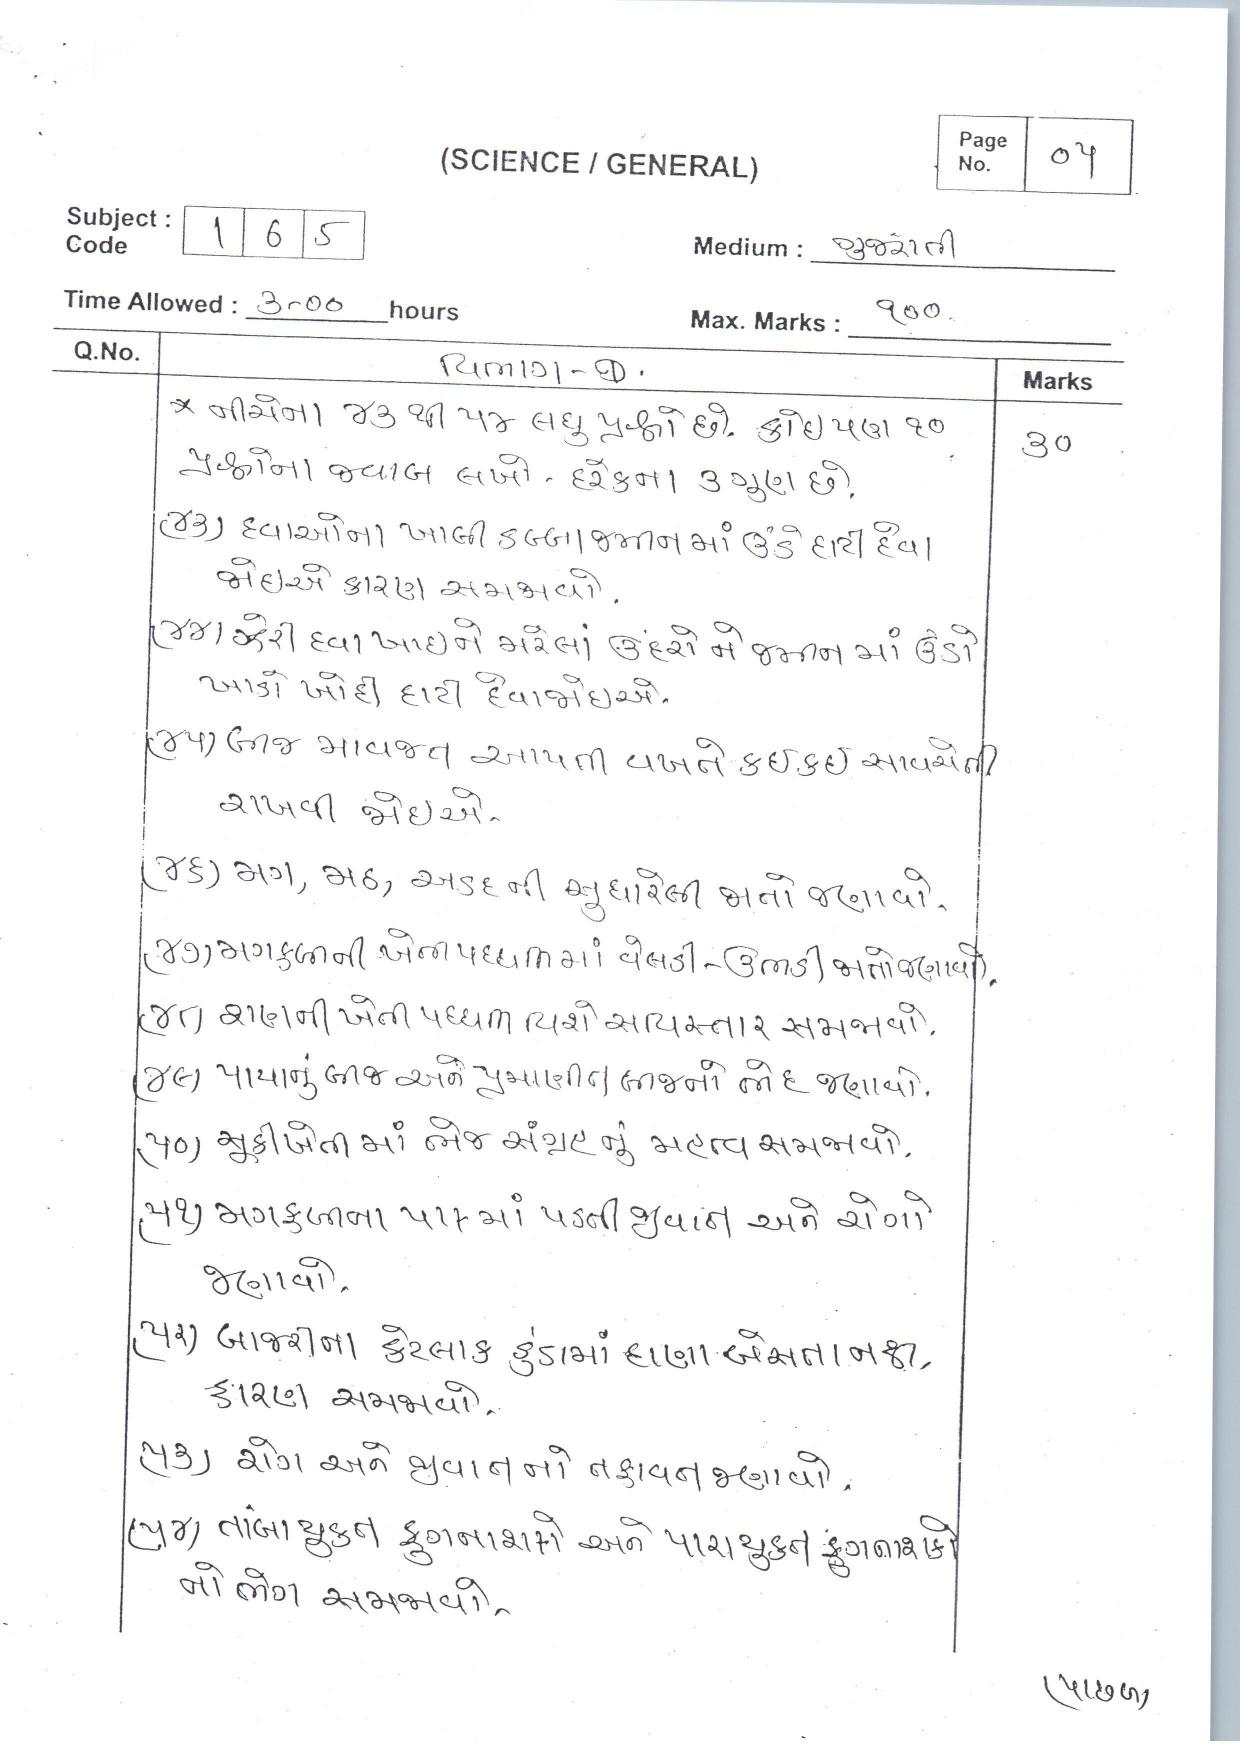 (SCIENCE / GENERAL)
Page No. ૦૫
Subject Code : 1 6 5
Medium : ગુજરાતી
Time Allowed : 3-00 hours
Max. Marks : ૧૦૦.
Q.No. વિભાગ - D. Marks
* નીચેના ૪૩ થી ૫૪ લઘુ પ્રશ્નો છે. કોઇપણ ૧૦ ૩૦
પ્રશ્નોના જવાબ લખો. દરેકના ૩ ગુણ છે.
(૪૩) દવાઓના ખાલી ડબ્બા જમીનમાં ઉંડે દાટી દેવા
જોઇએ કારણ સમજાવો.
(૪૪) ઝેરી દવા ખાઇને મરેલાં ઉંદરો ને જમીન માં ઉંડો
ખાડો ખોદી દાટી દેવા જોઇએ.
(૪૫) બીજ માવજત આપતી વખતે કઇ કઇ સાવચેતી
રાખવી જોઇએ.
(૪૬) મગ, મઠ, અડદ ની સુધારેલી જાતો જણાવો.
(૪૭) મગફળીની ખેતી પધ્ધતિમાં વેલડી - ઉભડી જાતો જણાવો.
(૪૮) શણની ખેતી પધ્ધતિ વિશે સવિસ્તાર સમજાવો.
(૪૯) પાયાનું બીજ અને પ્રમાણીત બીજનો ભેદ જણાવો.
(૫૦) સૂકીખેતી માં ભેજ સંગ્રહ નું મહત્વ સમજાવો.
(૫૧) મગફળીના પાક માં પડતી જીવાત અને રોગો
જણાવો.
(૫૨) બાજરીના કેટલાક ડુંડામાં દાણા બેસતા નથી.
કારણ સમજાવો.
(૫૩) રોગ અને જીવાત નો તફાવત જણાવો.
(૫૪) તાંબાયુકત ફુગનાશકો અને પારાયુકત ફુગનાશકો
નો ભેગ સમજાવો.
(પાછળ)